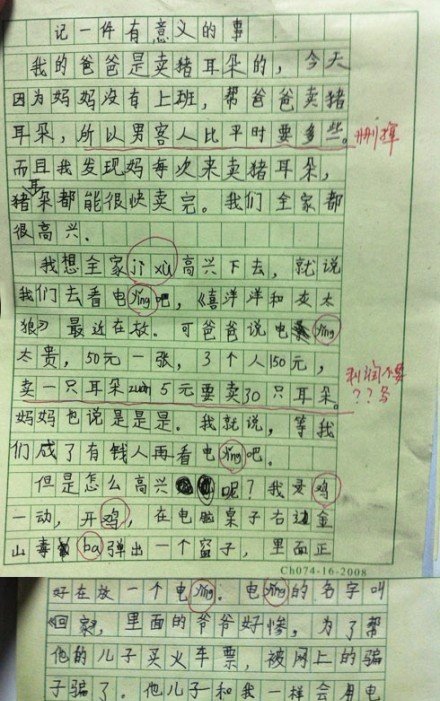 记一件有意义的事
我的爸爸是卖猪耳朵的，今天
因为妈妈没有上班，帮爸爸卖猪
耳朵，所以男客人比平时要多些。
而且我发现妈每次来卖猪耳朵，
猪耳朵都能很快卖完。我们全家都
很高兴.
我想全家jì xù高兴下去，就说
我们去看电yǐng吧，《喜洋洋和灰太
狼》最近在放. 可爸爸说电yǐng
太贵，50元一张，3个人150元，
卖一只耳朵zuàn 5元要卖30只耳朵。
妈妈也说是是是. 我就说，等我
们成了有钱人再看电yǐng吧.
但是怎么高兴呢？我灵鸡
一动，开鸡，在电脑桌子右边金
山毒ba弹出一个窗子，里面正
Ch074-16-2008
好在放一个电yǐng. 电yǐng的名字叫
《回家》，里面的爷爷好惨，为了帮
他的儿子买火车票，被网上的骗
子骗了. 他儿子和我一样会用电
删掉
利润不要
？？